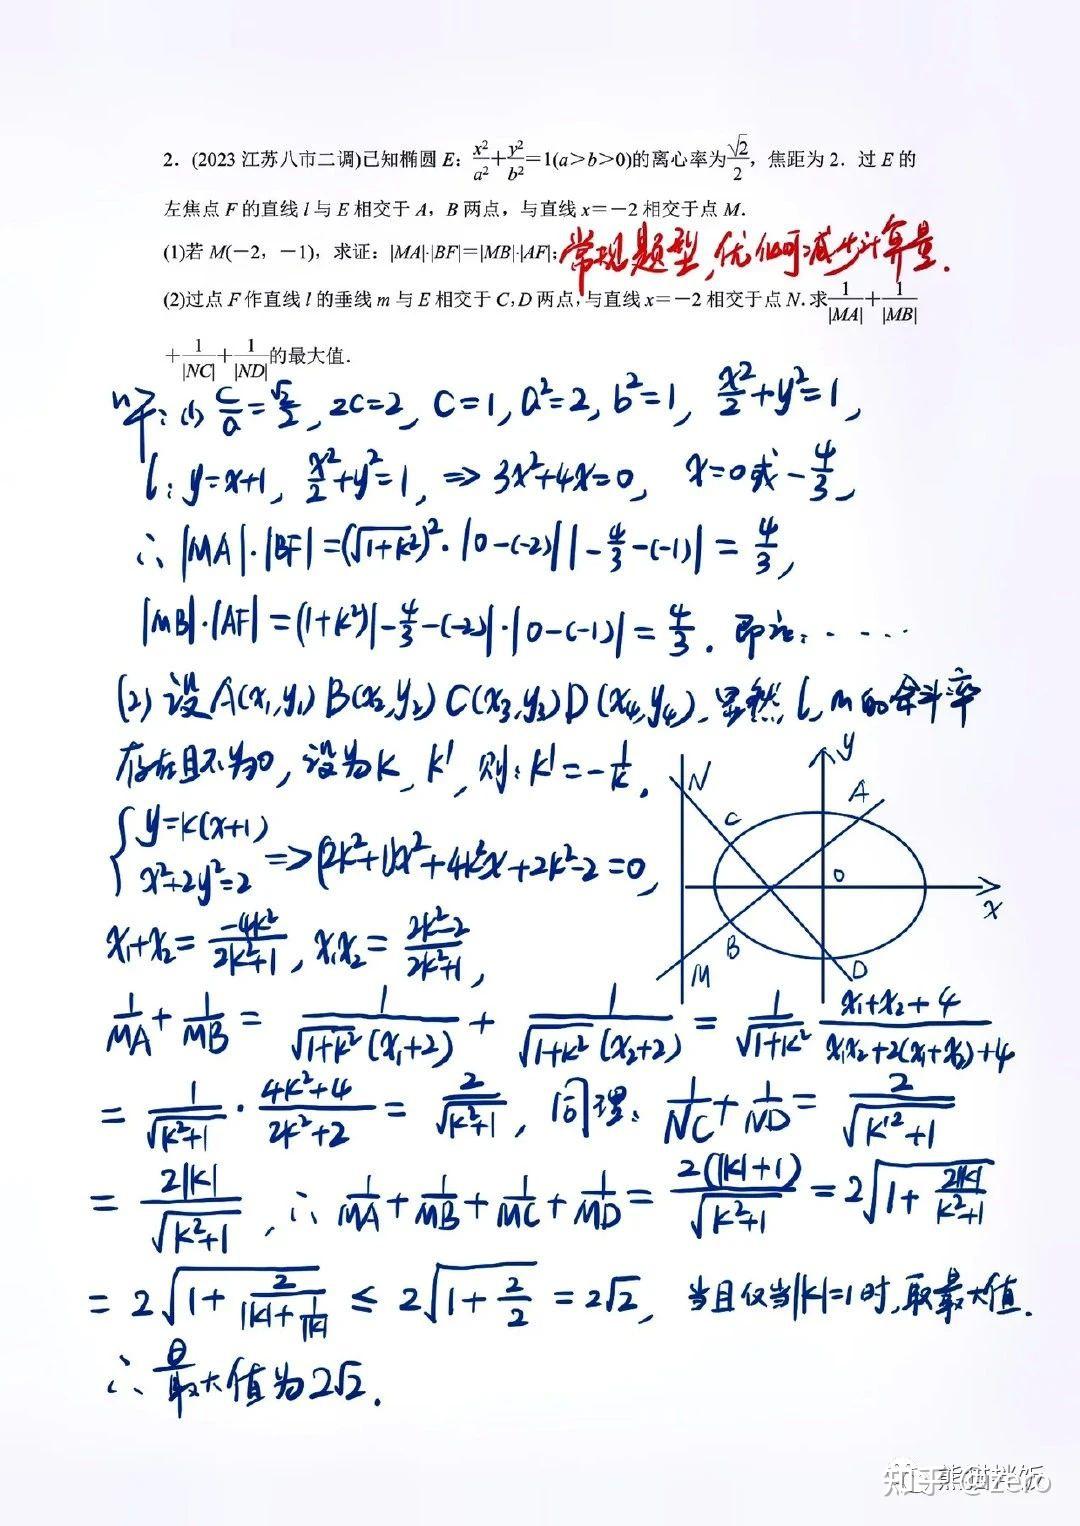 2．(2023 江苏八市二调)已知椭圆 E：x²/a²+y²/b²=1(a>b>0)的离心率为√2/2，焦距为 2．过 E 的
左焦点 F 的直线 l 与 E 相交于 A，B 两点，与直线 x=－2 相交于点 M．
(1)若 M(－2，－1)，求证：|MA|·|BF|=|MB|·|AF|；
常规题型，优何可减少计算量．
(2)过点 F 作直线 l 的垂线 m 与 E 相交于 C，D 两点，与直线 x=－2 相交于点 N．求1/|MA|+1/|MB|
+1/|NC|+1/|ND|的最大值．
(1) c/a=√2/2, 2c=2, c=1, a²=2, b²=1, x²/2+y²=1,
l: y=x+1, x²/2+y²=1, ⇒ 3x²+4x=0, x=0或-4/3,
∴ |MA|·|BF|=(√(1+k²))²·|0-(-2)||-4/3-(-1)|=4/3,
|MB|·|AF|=(1+k²)|-4/3-(-2)|·|0-(-1)|=4/3. 即证：……
(2) 设A(x₁,y₁) B(x₂,y₂) C(x₃,y₃) D(x₄,y₄), 显然 l, m的斜率
存在且不为0, 设为k, k', 则: k'=-1/k.
{y=k(x+1)
x²+2y²=2 => (2k²+1)x²+4k²x+2k²-2=0,
x₁+x₂=-4k²/(2k²+1), x₁x₂=(2k²-2)/(2k²+1),
N
y
A
C
O
x
B
M
D
1/MA+1/MB=1/(√(1+k²)(x₁+2))+1/(√(1+k²)(x₂+2))=1/√(1+k²) (x₁+x₂+4)/(x₁x₂+2(x₁+x₂)+4)
=1/√(k²+1)·(4k²+4)/(2k²+2)=2/√(k²+1), 同理: 1/NC+1/ND=2/√(k'²+1)
=2|k|/√(k²+1), ∴ 1/MA+1/MB+1/MC+1/MD=2(|k|+1)/√(k²+1)=2√(1+2|k|/(k²+1))
=2√(1+2/(|k|+1/|k|)) ≤ 2√(1+2/2)=2√2, 当且仅当|k|=1时,取最大值.
∴ 最大值为2√2.
知乎 @zero